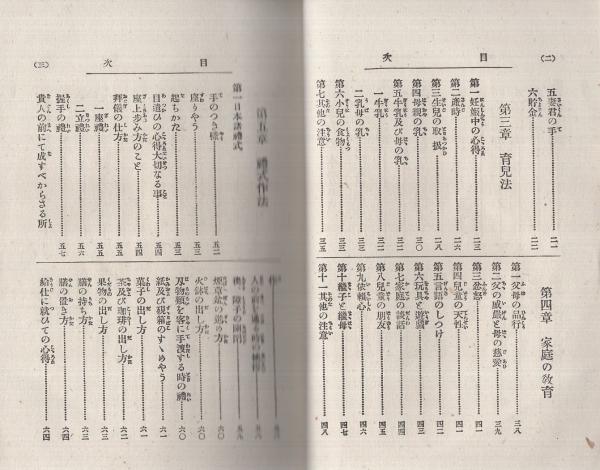 (二)
目次
五 妻君の手 二一
六 貯金 二二
第三章 育兒法
第一 妊娠中の心得 二三
第二 產時 二六
第三 生兒の取扱 二八
第四 母親の乳 三〇
第五 牛乳及び母の乳 三二
一 牛乳 三二
二 乳母の乳 三三
第六 小兒の食物 三三
第七 其他の注意 三五
第四章 家庭の教育
第一 父母の品行 三八
第二 父の威嚴と母の慈愛 三九
第三 忿怒 四一
第四 兒童の天性 四一
第五 言語のしつけ 四二
第六 玩具と遊戯 四三
第七 家庭の談話 四四
第八 兒童の朋友 四五
第九 依賴心 四六
第十 繼子と繼母 四七
第十一 其他の注意 四八
目次
(三)
第五章 禮式作法
第一 日本諸禮式
手のつき樣 五二
座りやう 五三
起ちかた 五三
目遣ひの心得大切なる事 五四
座上歩み方のこと 五四
拜儀の仕方 五五
一 座禮 五五
二 立禮 五六
握手の禮 五七
貴人の前にて成すべからざる所
障子の開閉
煙草盆の進め方 六〇
火鉢の出し方 六〇
刃物類を客に手渡する時の禮 六〇
紙及び硯箱のすゝめやう 六一
菓子の出し方 六一
茶及び珈琲の出し方 六二
果物の出し方 六三
膳の持ち方 六三
膳の置き方 六四
給仕に就ひての心得 六四